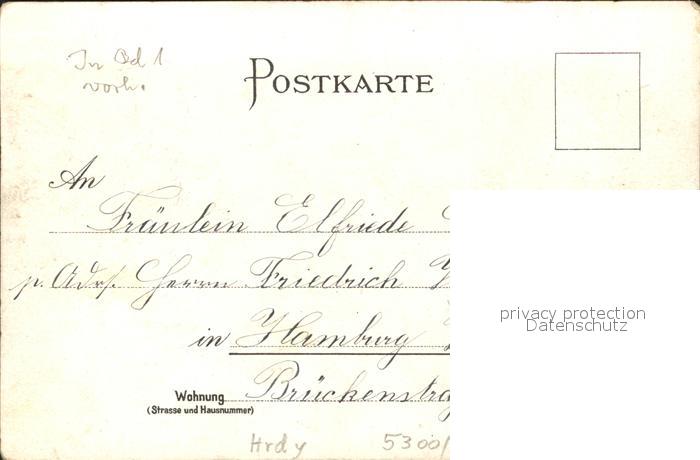 In Od 1
vorh.
POSTKARTE
An
Fräulein Elfriede
p. Adr. Herrn Friedrich
in Hamburg
Brückenstra
Wohnung
(Strasse und Hausnummer)
privacy protection
Datenschutz
Hrdy 5300/